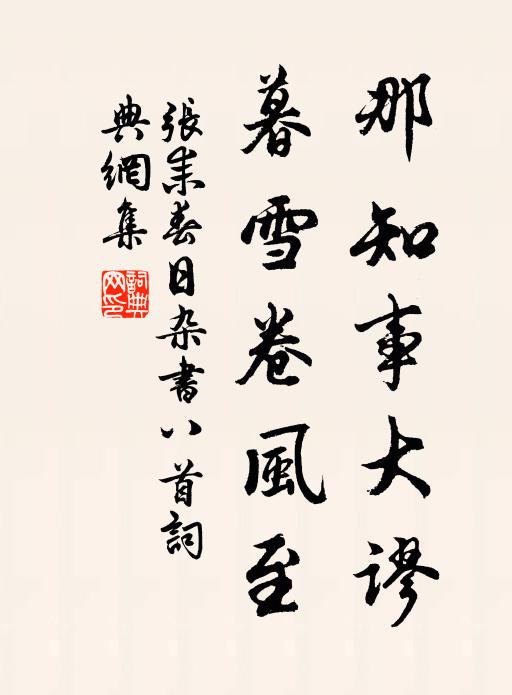 那知事大謬
暮雪卷風至
張耒春日杂書八首詞
典網集
詞典網印